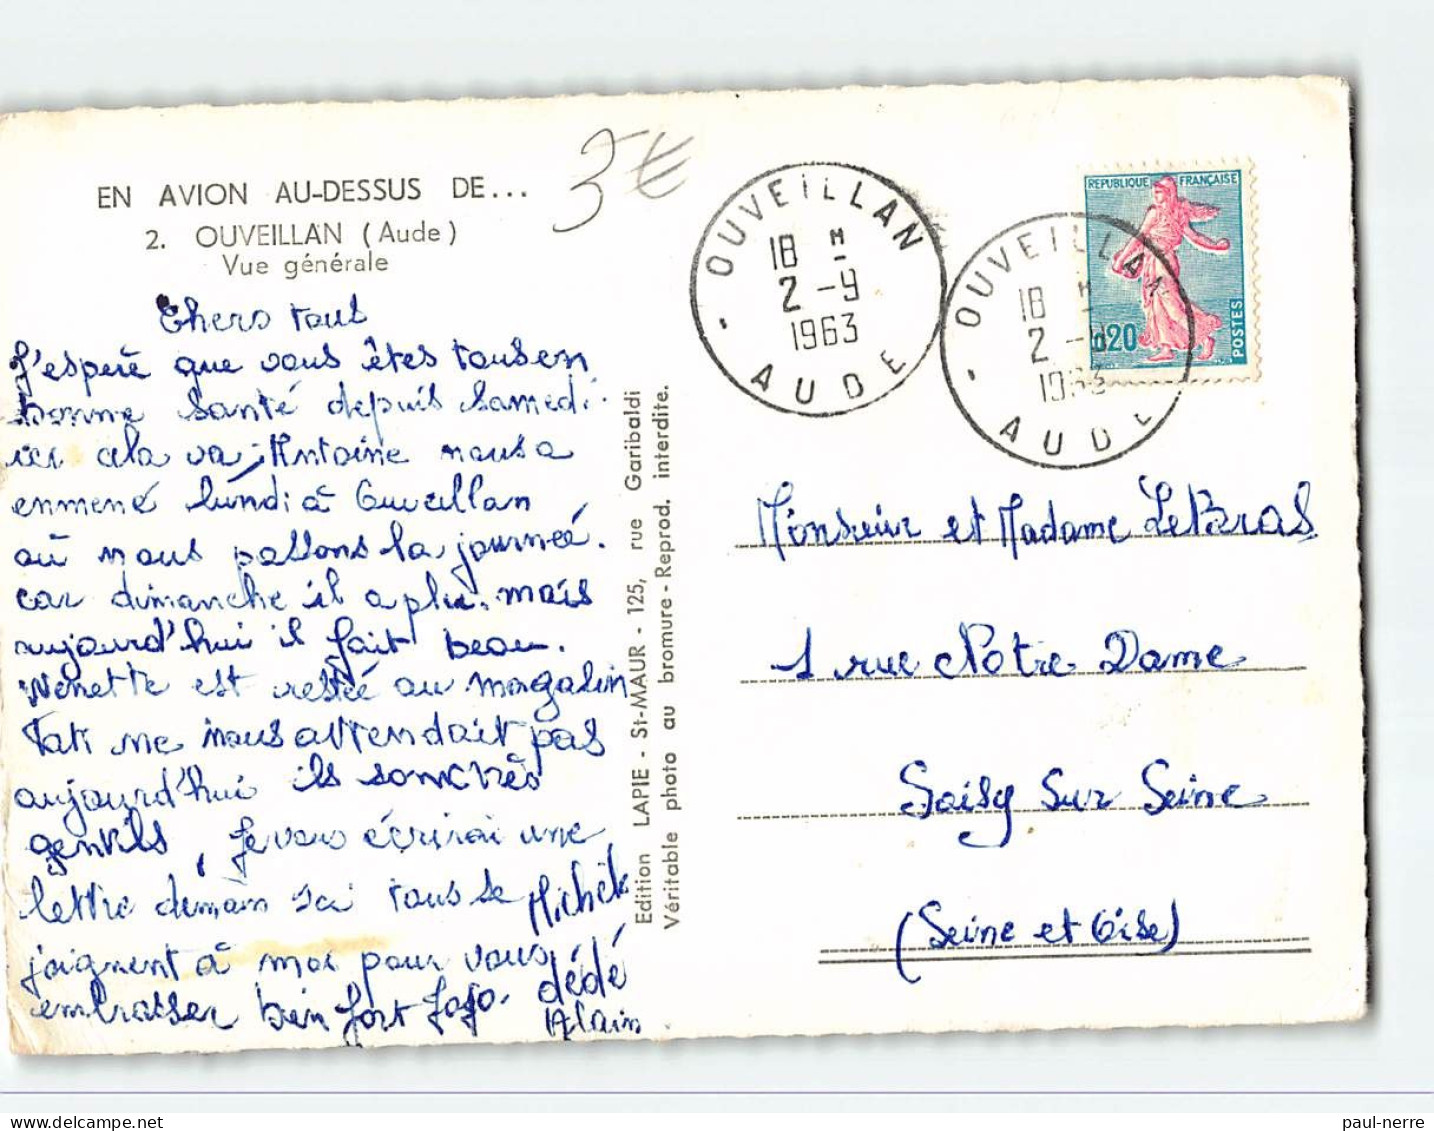 EN AVION AU-DESSUS DE...
2. OUVEILLAN (Aude)
Vue générale
3€
Chers tous
J'espère que vous êtes tous en
bonne santé depuis samedi.
ici cela va, Antoine nous a
enmené lundi à Ouveillan
où nous passons la journeé.
car dimanche il a plu. mais
aujourd'hui il fait beau.
Nenette est restée au magasin
Tati ne nous attendait pas
aujourd'hui ils sont très
gentils, Je vous écrirai une
lettre demain ici tous se
joignent à moi pour vous
embrasser bien fort Jojo.
Michèle
dédé
Alain
Edition LAPIE - St-MAUR - 125, rue Garibaldi
Véritable photo au bromure - Reprod. interdite.
OUVEILLAN
18 H
2 - 9
1963
AUDE
OUVEILLAN
18 H
2 -
1963
AUDE
REPUBLIQUE FRANÇAISE
0,20
POSTES
Monsieur et Madame LeBras
1 rue Notre Dame
Soisy sur Seine
(Seine et Oise)
paul-nerre